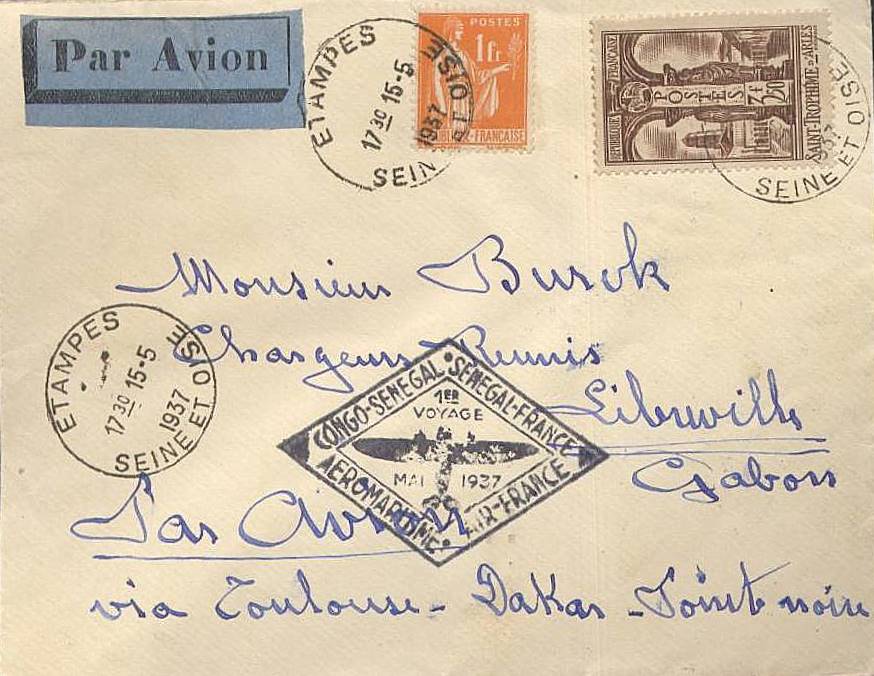 Par Avion
ETAMPES
17 30 15-5
1937
SEINE ET OISE
POSTES
1Fr
REPUBLIQUE-FRANÇAISE
REPUBLIQUE FRANÇAISE
POSTES
3f50
SAINT-TROPHIME D'ARLES
SEINE ET OISE
Monsieur Burok
Chargeurs Reunis
Libreville
Gabon
ETAMPES
17 30 15-5
1937
SEINE ET OISE
CONGO-SENEGAL • SENEGAL-FRANCE
1ER
VOYAGE
MAI 1937
AEROMARITIME • AIR-FRANCE
Par Avion
via Toulouse - Dakar - Pointe noire